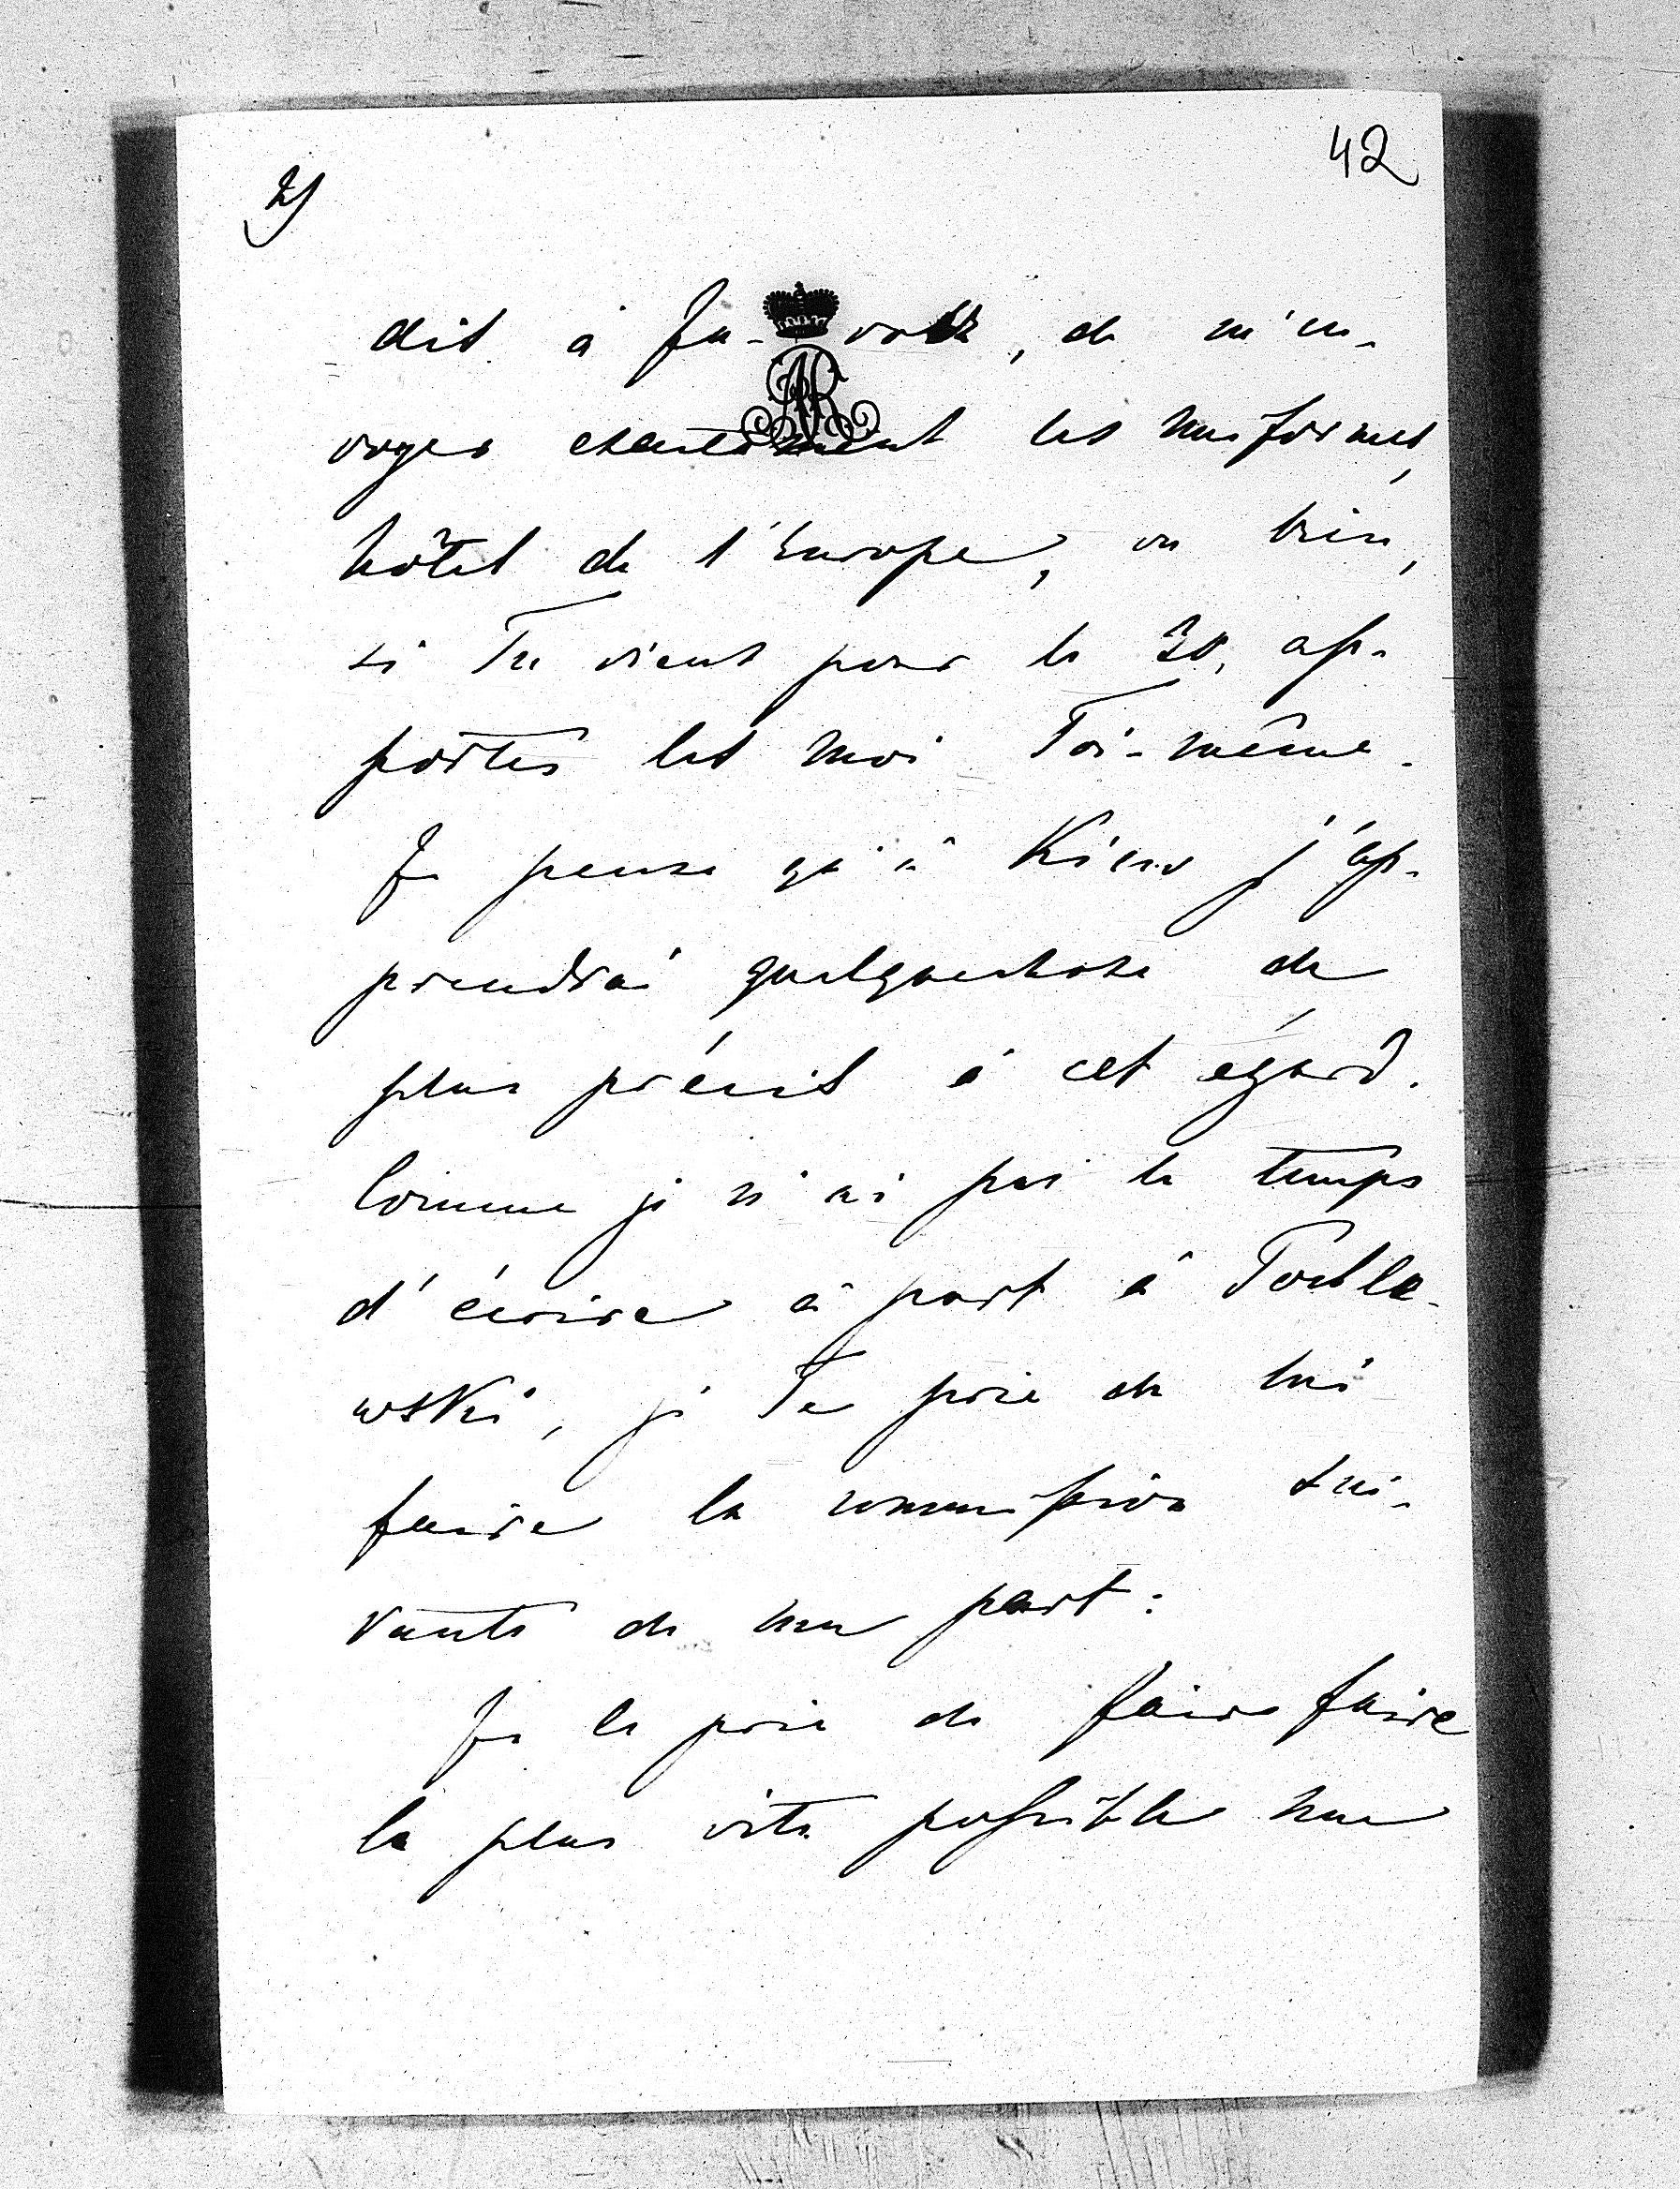 42
dit à , de m'en-
voyer exactement les uniformes,
hôtel de l'Europe, ou bien,
si Tu viens pour le 30, ap-
portes les moi Toi-même.
Je pense qu'à Kiew j'ap-
prendrai quelquechose de
plus précis à cet égard.
Comme je n'ai pas le temps
d'écrire à part à Pocle-
wski, je Te prie de lui
faire la commission sui-
vante de ma part:
Je le prie de faire faire
le plus vite possible une